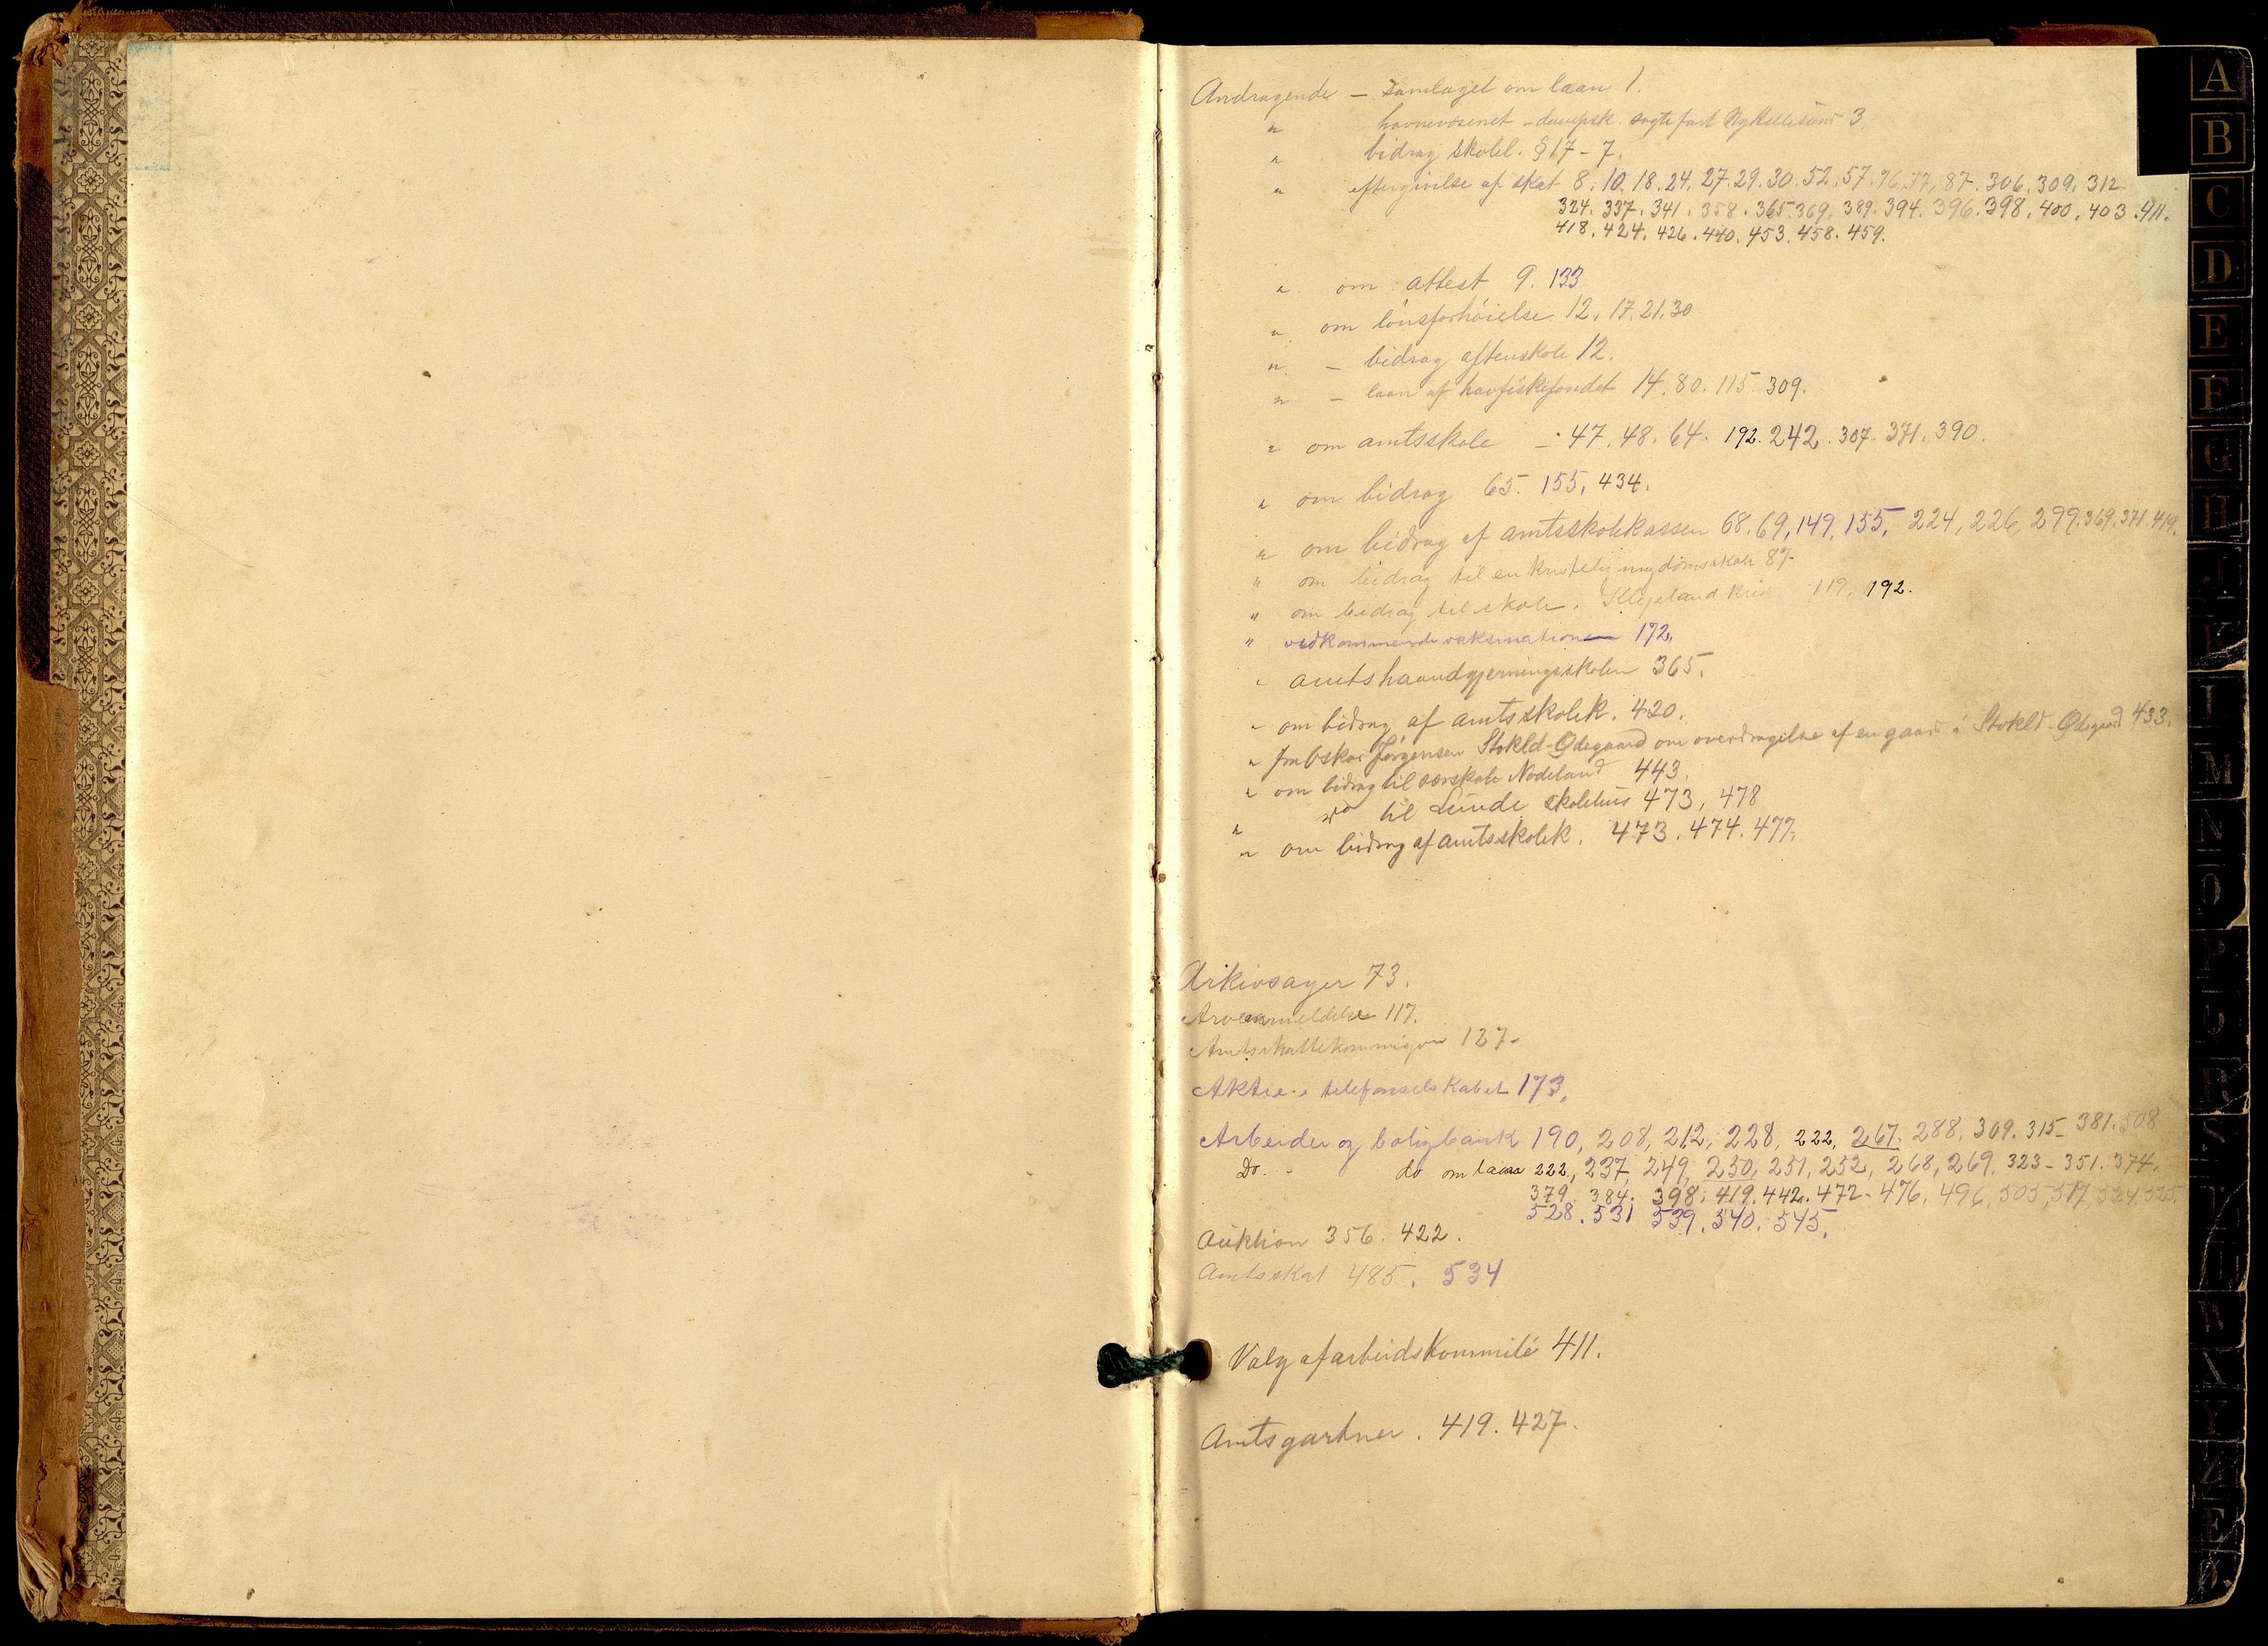 Andragende – samlaget om laan 1.
" havnevæsenet – dampsk. sagte fart 3
" bidrag skolel. § 17 – 7.
" eftergivelse af skat 8. 10. 18. 24. 27. 29. 30. 52. 57. 76. 77, 87. 306. 309. 312
324. 337. 341. 358. 365. 369. 389. 394. 396. 398. 400. 403. 411.
418. 424. 426. 440. 453. 458. 459.
" om attest 9. 133
" om lönsforhöielse 12. 17. 21. 30
" – bidrag aftenskole 12.
" – laan af havfiskefondet 14. 80. 115. 309.
" om amtsskole – 47. 48. 64. 192. 242. 307. 371. 390.
" om bidrag 65. 155. 434.
" om bidrag af amtsskolekassen 68. 69, 149, 155, 224, 226, 299. 369. 371. 419.
" om bidrag til en kristelig ungdomsskole 87
" om bidrag til skole. 119. 192.
" vedkommende vaksinationen 172,
" amtshaandgjerningsskolen 365.
" om bidrag af amtsskolek. 420.
" fra Oskar Jørgensen Stokld-Ødegaard om overdragelse af en gaard i Stokld-Ødegaard 433.
" om bidrag til skole Nodeland 443.
" do til Lunde skolehus 473, 478
" om bidrag af amtsskolek. 473. 474. 477.
Arkivsager 73.
Arveanmeldelse 117.
Amtsskattekommisjon 127
Aktie i telefonselskabet 173,
Arbeider og boligbank 190, 208, 212, 228, 222, 267. 288. 309. 315– 381. 508
Do. do om laan 222, 237, 249, 250, 251, 252, 268, 269. 323– 351. 374.
379. 384. 398. 419. 442. 472– 476. 496, 505, 517 524. 525.
528. 531 539. 540. 545.
Auktion 356. 422.
Amtsskat 485. 534
Valg af arbeidskommité 411.
Amtsgartner. 419. 427.
A
B
C
D
E
F
G
H
I
K
L
M
N
O
P
Q
R
S
T
U
V
W
X
Y
Z
Æ
Ø